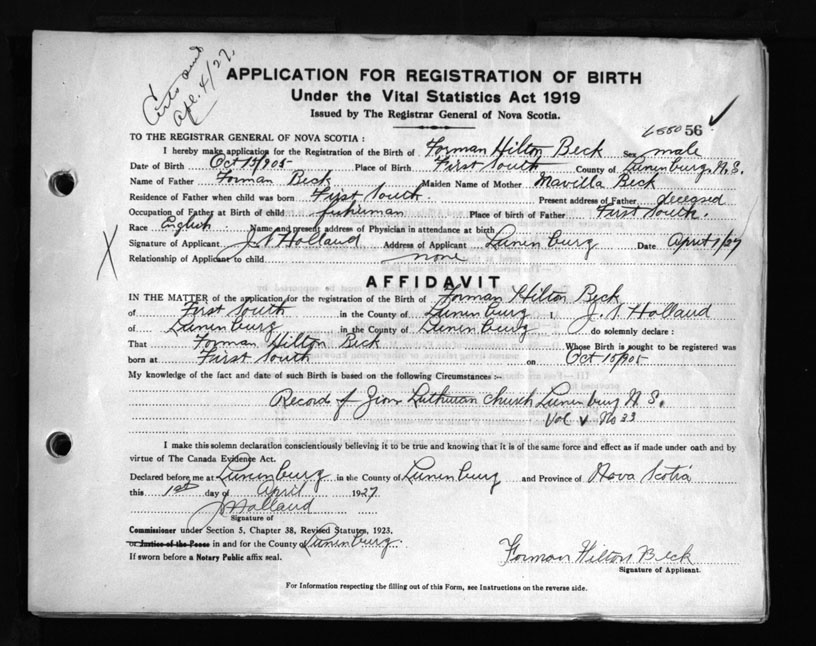 Certs and
Apl. 4/27.
APPLICATION FOR REGISTRATION OF BIRTH
Under the Vital Statistics Act 1919
Issued by The Registrar General of Nova Scotia.
655056 ✓
TO THE REGISTRAR GENERAL OF NOVA SCOTIA :
I hereby make application for the Registration of the Birth of Forman Hilton Beck Sex male
Date of Birth Oct 15/905 Place of Birth First South County of Lunenburg, N.S.
Name of Father Forman Beck Maiden Name of Mother Mavilla Beck
Residence of Father when child was born First South. Present address of Father deceased
Occupation of Father at Birth of child fisherman Place of birth of Father First South.
Race English Name and present address of Physician in attendance at birth
Signature of Applicant Holland Address of Applicant Lunenburg Date April 1/27
X Relationship of Applicant to child none
AFFIDAVIT
IN THE MATTER of the application for the registration of the Birth of Forman Hilton Beck
of First South in the County of Lunenburg I, Holland
of Lunenburg in the County of Lunenburg do solemnly declare :
That Forman Hilton Beck Whose Birth is sought to be registered was
born at First South on Oct 15/905
My knowledge of the fact and date of such Birth is based on the following Circumstances :-
Record of Zion Lutheran church Lunenburg N. S.
Vol V No 33
I make this solemn declaration conscientiously believing it to be true and knowing that it is of the same force and effect as if made under oath and by
virtue of The Canada Evidence Act.
Declared before me at Lunenburg in the County of Lunenburg and Province of Nova Scotia
this 1st day of April 1927
Holland
Signature of
Commissioner under Section 5, Chapter 38, Revised Statutes, 1923.
or Justice of the Peace in and for the County of Lunenburg
If sworn before a Notary Public affix seal.
Forman Hilton Beck
Signature of Applicant.
For Information respecting the filling out of this Form, see Instructions on the reverse side.